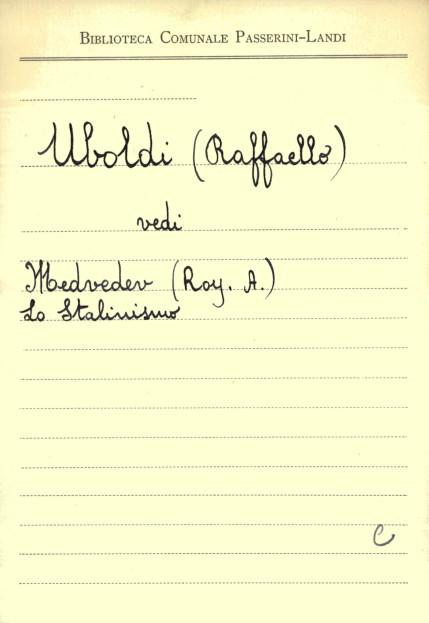 BIBLIOTECA COMUNALE PASSERINI-LANDI
Uboldi (Raffaello)
vedi
Medvedev (Roy. A.)
Lo Stalinismo
C